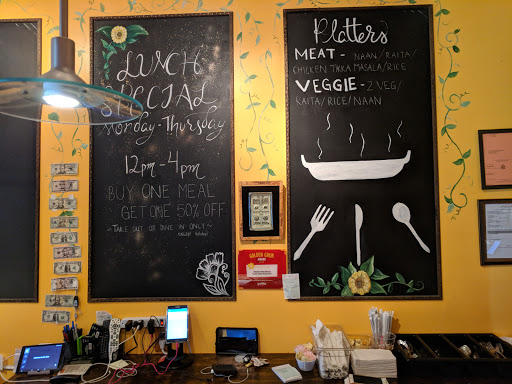 LUNCH
SPECIAL
Monday-Thursday
12pm-4pm
BUY ONE MEAL
GET ONE 50% OFF
~ TAKE OUT OR DINE IN ONLY ~
Platters
MEAT - NAAN/RAITA/
CHICKEN TIKKA MASALA/RICE
VEGGIE - 2 VEG/
RAITA/RICE/NAAN